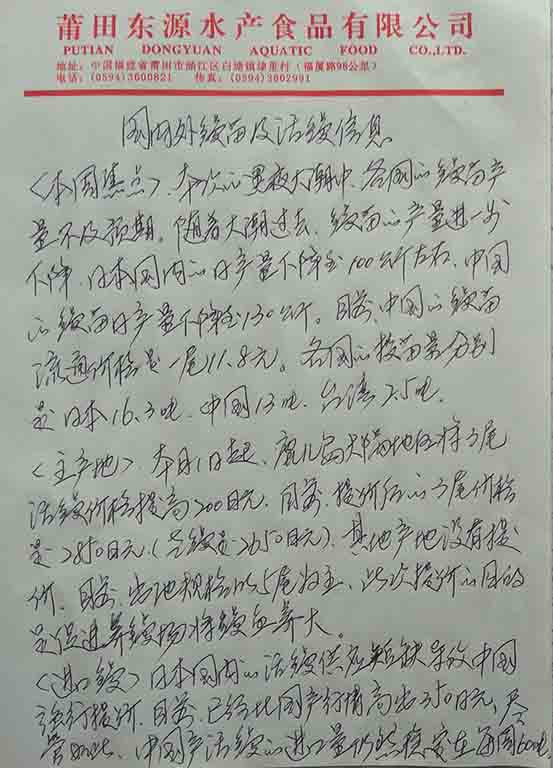 莆田东源水产食品有限公司
PUTIAN DONGYUAN AQUATIC FOOD CO.,LTD.
地址:中国福建省莆田市涵江区白塘镇绿里村(福厦路98公里)
电话:(0594)3600821 传真:(0594)3602991
国内外鳗苗及活鳗信息
<本周焦点>本次的黑夜大潮中、各国的鳗苗产
量不及预期。随着大潮过去、鳗苗的产量进一步
下降、日本国内的日产量下降至100公斤左右、中国
的鳗苗日产量下降至130公斤。目前、中国的鳗苗
流通价格是一尾11.8元。各国的投苗量分别
是日本16.3吨、中国13吨、台湾2.5吨。
<主产地>本月1日起、鹿儿岛大隅地区将3尾
活鳗价格提高200日元、目前、提价后的3尾价格
是2850日元(是2650日元)、其他产地没有提
价、目前、当地规格以5尾为主、此次提价的目的
是促进养鳗场将鳗鱼养大。
<进口鳗>日本国内的活鳗供应短缺导致中国
强行提价、目前、已经比国产行情高出350日元、尽
管如此、中国产活鳗的进口量仍然稳定在每周60吨